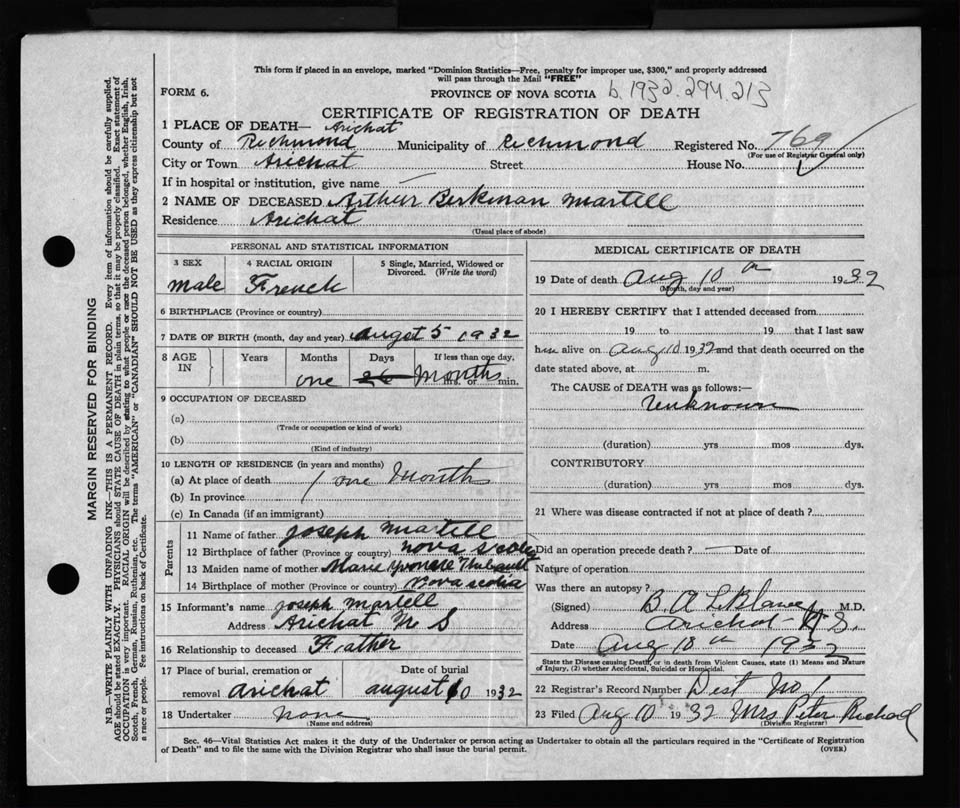 This form if placed in an envelope, marked "Dominion Statistics—Free, penalty for improper use, $300," and properly addressed
will pass through the Mail "FREE"
FORM 6.
PROVINCE OF NOVA SCOTIA b. 1932. 294. 213
CERTIFICATE OF REGISTRATION OF DEATH
1 PLACE OF DEATH— Arichat
County of Richmond Municipality of Richmond Registered No. 769
(For use of Registrar General only)
City or Town Arichat Street House No.
If in hospital or institution, give name
2 NAME OF DECEASED Arthur Berkman Martell
Residence Arichat
(Usual place of abode)
PERSONAL AND STATISTICAL INFORMATION
3 SEX
male
4 RACIAL ORIGIN
French
5 Single, Married, Widowed or
Divorced. (Write the word)
6 BIRTHPLACE (Province or country)
7 DATE OF BIRTH (month, day and year) augst 5 1932
8 AGE IN Years Months Days If less than one day,
one 26 Months hrs. or min.
9 OCCUPATION OF DECEASED
(a)
(Trade or occupation or kind of work)
(b)
(Kind of industry)
10 LENGTH OF RESIDENCE (in years and months)
(a) At place of death 1 one Month
(b) In province
(c) In Canada (if an immigrant)
Parents
11 Name of father Joseph Martell
12 Birthplace of father (Province or country) Nova Scotia
13 Maiden name of mother Marie Yvonne Thibault
14 Birthplace of mother (Province or country) Nova Scotia
15 Informant's name Joseph Martell
Address Arichat N S
16 Relationship to deceased Frather
17 Place of burial, cremation or Date of burial
removal Arichat august 10 1932
18 Undertaker none
(Name and address)
MEDICAL CERTIFICATE OF DEATH
19 Date of death Aug 10 1932
(Month, day and year)
20 I HEREBY CERTIFY that I attended deceased from
19 to 19 that I last saw
him alive on Aug 10 1932 and that death occurred on the
date stated above, at m.
The CAUSE of DEATH was as follows:—
Unknown
(duration) yrs mos dys.
CONTRIBUTORY
(duration) yrs mos dys.
21 Where was disease contracted if not at place of death?
Did an operation precede death? — Date of
Nature of operation
Was there an autopsy?
(Signed) B. A. LeBlanc M.D.
Address Arichat N.S.
Date Aug 10 1932
State the Disease causing Death, or in death from Violent Causes, state (1) Means and Nature
of Injury, (2) whether Accidental, Suicidal or Homicidal.
22 Registrar's Record Number Dest No 1
23 Filed Aug 10 1932 Mrs Peter Richard
(Division Registrar)
Sec. 46—Vital Statistics Act makes it the duty of the Undertaker or person acting as Undertaker to obtain all the particulars required in the "Certificate of Registration
of Death" and to file the same with the Division Registrar who shall issue the burial permit.
(OVER)
MARGIN RESERVED FOR BINDING
N.B.—WRITE PLAINLY WITH UNFADING INK—THIS IS A PERMANENT RECORD. Every item of information should be carefully supplied.
AGE should be stated EXACTLY. PHYSICIANS should STATE CAUSE OF DEATH in plain terms, so that it may be properly classified. Exact statement of
OCCUPATION is very important. RACIAL ORIGIN will be described by stating to what people or race the deceased person belonged, whether English, Irish,
Scotch, French, German, Russian, Ruthenian, etc. The terms "AMERICAN" or "CANADIAN" SHOULD NOT BE USED as they express citizenship but not
a race or people. Fee instructions on back of Certificate.